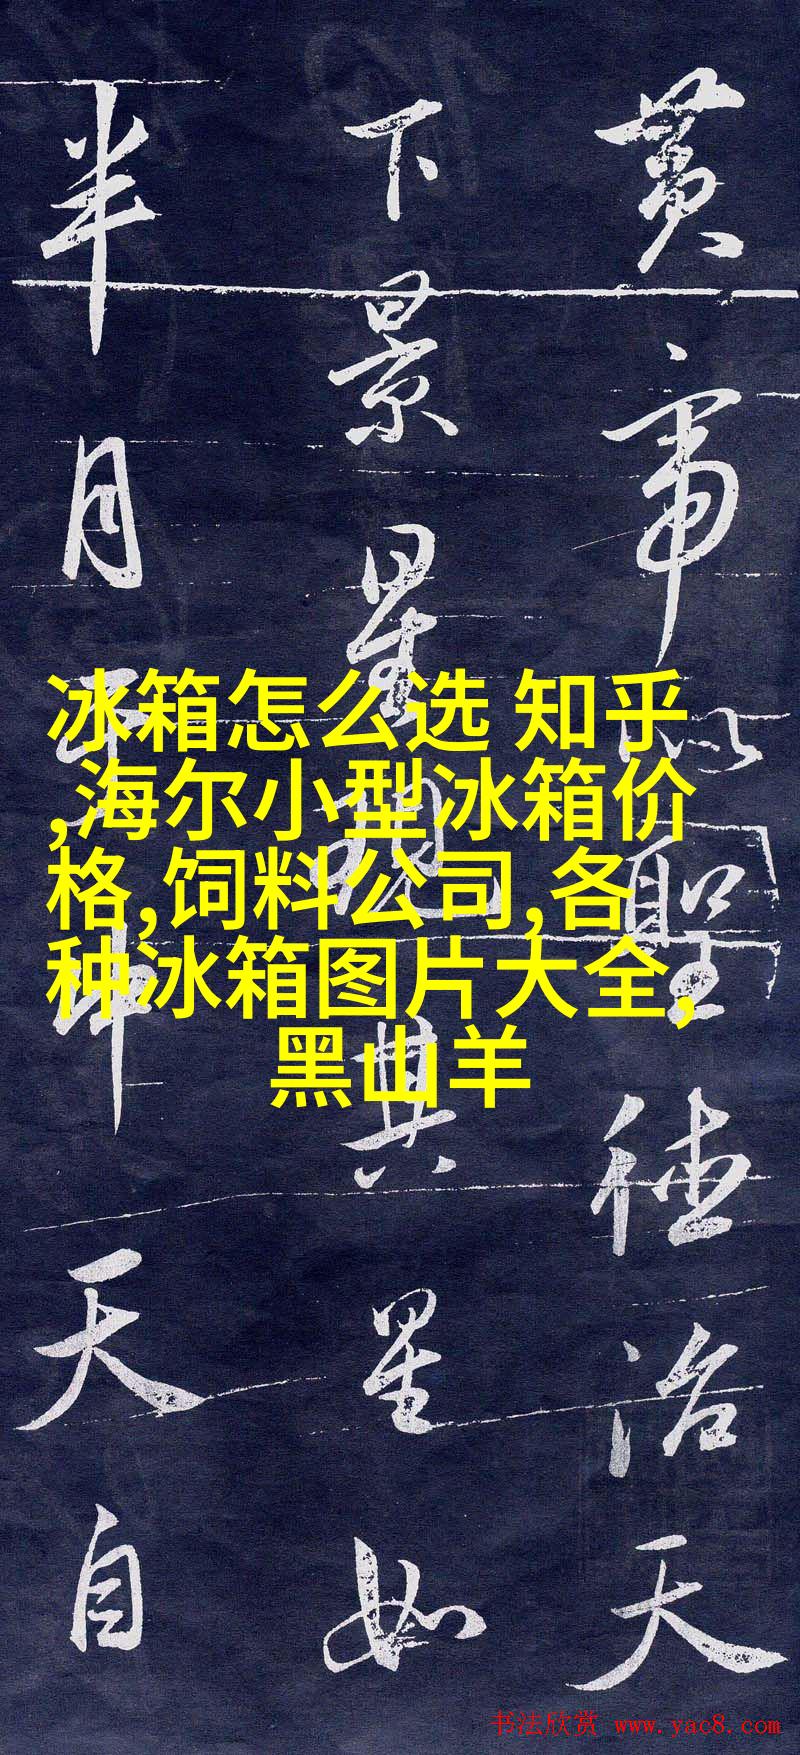 黄帝以聖德治天
下景星現其星如
半月中天自
冰箱怎么选 知乎
,海尔小型冰箱价
格,饲料公司,各
种冰箱图片大全,
黑山羊
书法欣赏 www.yac8.com